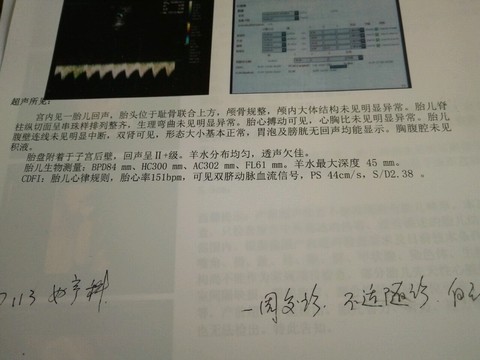 超声所见:
宫内见一胎儿回声,胎头位于耻骨联合上方,颅骨规整,颅内大体结构未见明显异常。胎儿脊
柱纵切面呈串珠样排列整齐,生理弯曲未见明显异常。胎心搏动可见,心胸比未见明显异常。胎儿
腹壁连线未见明显中断,双肾可见,形态大小基本正常,胃泡及膀胱无回声均能显示。胸腹腔未见
积液。
胎盘附着于子宫后壁,回声呈Ⅱ+级。羊水分布均匀,透声欠佳。
胎儿生物测量:BPD84 mm、HC300 mm、AC302 mm、FL61 mm。羊水最大深度 45 mm。
CDFI:胎儿心律规则,胎心率151bpm,可见双脐动脉血流信号,PS 44cm/s,S/D2.38 。
妇产科
一周复诊、不适随诊、